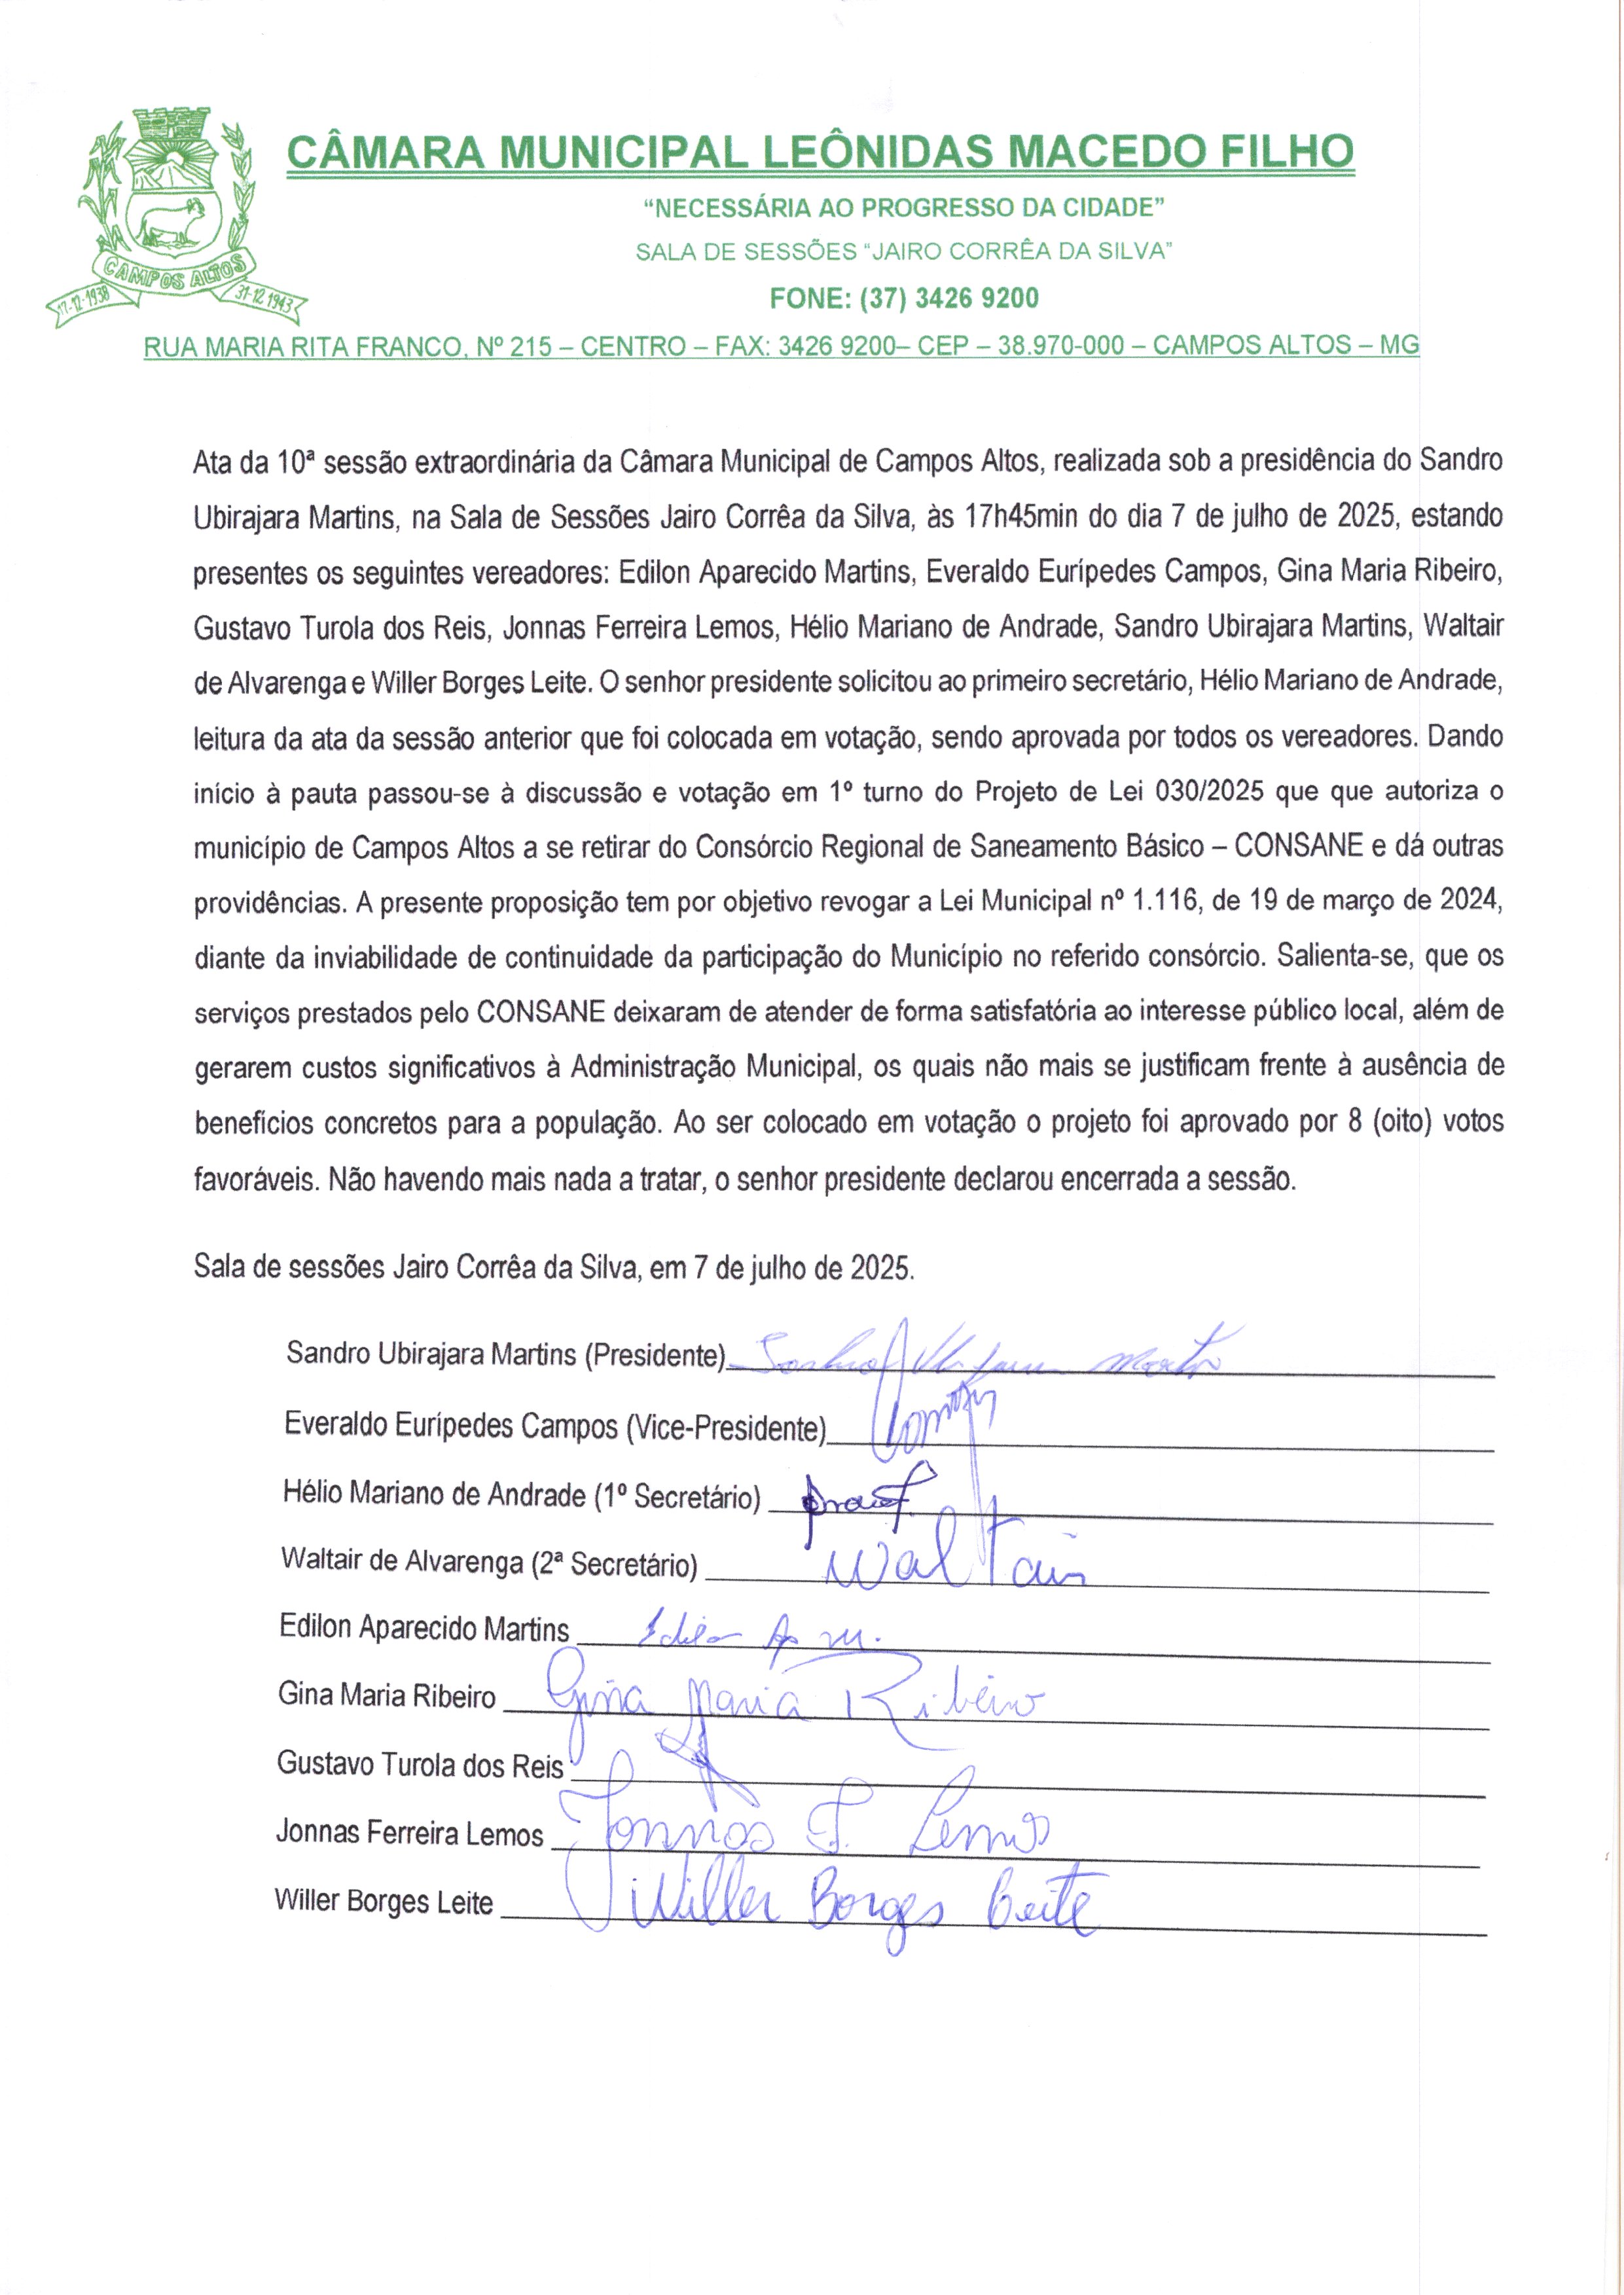 CÂMARA MUNICIPAL LEÔNIDAS MACEDO FILHO
“NECESSÁRIA AO PROGRESSO DA CIDADE”
SALA DE SESSÕES “JAIRO CORRÊA DA SILVA”
FONE: (37) 3426 9200
CAMPOS ALTOS
17-12-1938
31-12 1943
RUA MARIA RITA FRANCO, Nº 215 – CENTRO – FAX: 3426 9200– CEP – 38.970-000 – CAMPOS ALTOS – MG
Ata da 10ª sessão extraordinária da Câmara Municipal de Campos Altos, realizada sob a presidência do Sandro
Ubirajara Martins, na Sala de Sessões Jairo Corrêa da Silva, às 17h45min do dia 7 de julho de 2025, estando
presentes os seguintes vereadores: Edilon Aparecido Martins, Everaldo Eurípedes Campos, Gina Maria Ribeiro,
Gustavo Turola dos Reis, Jonnas Ferreira Lemos, Hélio Mariano de Andrade, Sandro Ubirajara Martins, Waltair
de Alvarenga e Willer Borges Leite. O senhor presidente solicitou ao primeiro secretário, Hélio Mariano de Andrade,
leitura da ata da sessão anterior que foi colocada em votação, sendo aprovada por todos os vereadores. Dando
início à pauta passou-se à discussão e votação em 1º turno do Projeto de Lei 030/2025 que que autoriza o
município de Campos Altos a se retirar do Consórcio Regional de Saneamento Básico – CONSANE e dá outras
providências. A presente proposição tem por objetivo revogar a Lei Municipal nº 1.116, de 19 de março de 2024,
diante da inviabilidade de continuidade da participação do Município no referido consórcio. Salienta-se, que os
serviços prestados pelo CONSANE deixaram de atender de forma satisfatória ao interesse público local, além de
gerarem custos significativos à Administração Municipal, os quais não mais se justificam frente à ausência de
benefícios concretos para a população. Ao ser colocado em votação o projeto foi aprovado por 8 (oito) votos
favoráveis. Não havendo mais nada a tratar, o senhor presidente declarou encerrada a sessão.
Sala de sessões Jairo Corrêa da Silva, em 7 de julho de 2025.
Sandro Ubirajara Martins (Presidente)
Everaldo Eurípedes Campos (Vice-Presidente)
Hélio Mariano de Andrade (1º Secretário)
Waltair de Alvarenga (2ª Secretário) Waltair
Edilon Aparecido Martins Edilon Ap M.
Gina Maria Ribeiro Gina Maria Ribeiro
Gustavo Turola dos Reis
Jonnas Ferreira Lemos Jonnas F. Lemos
Willer Borges Leite Willer Borges Leite